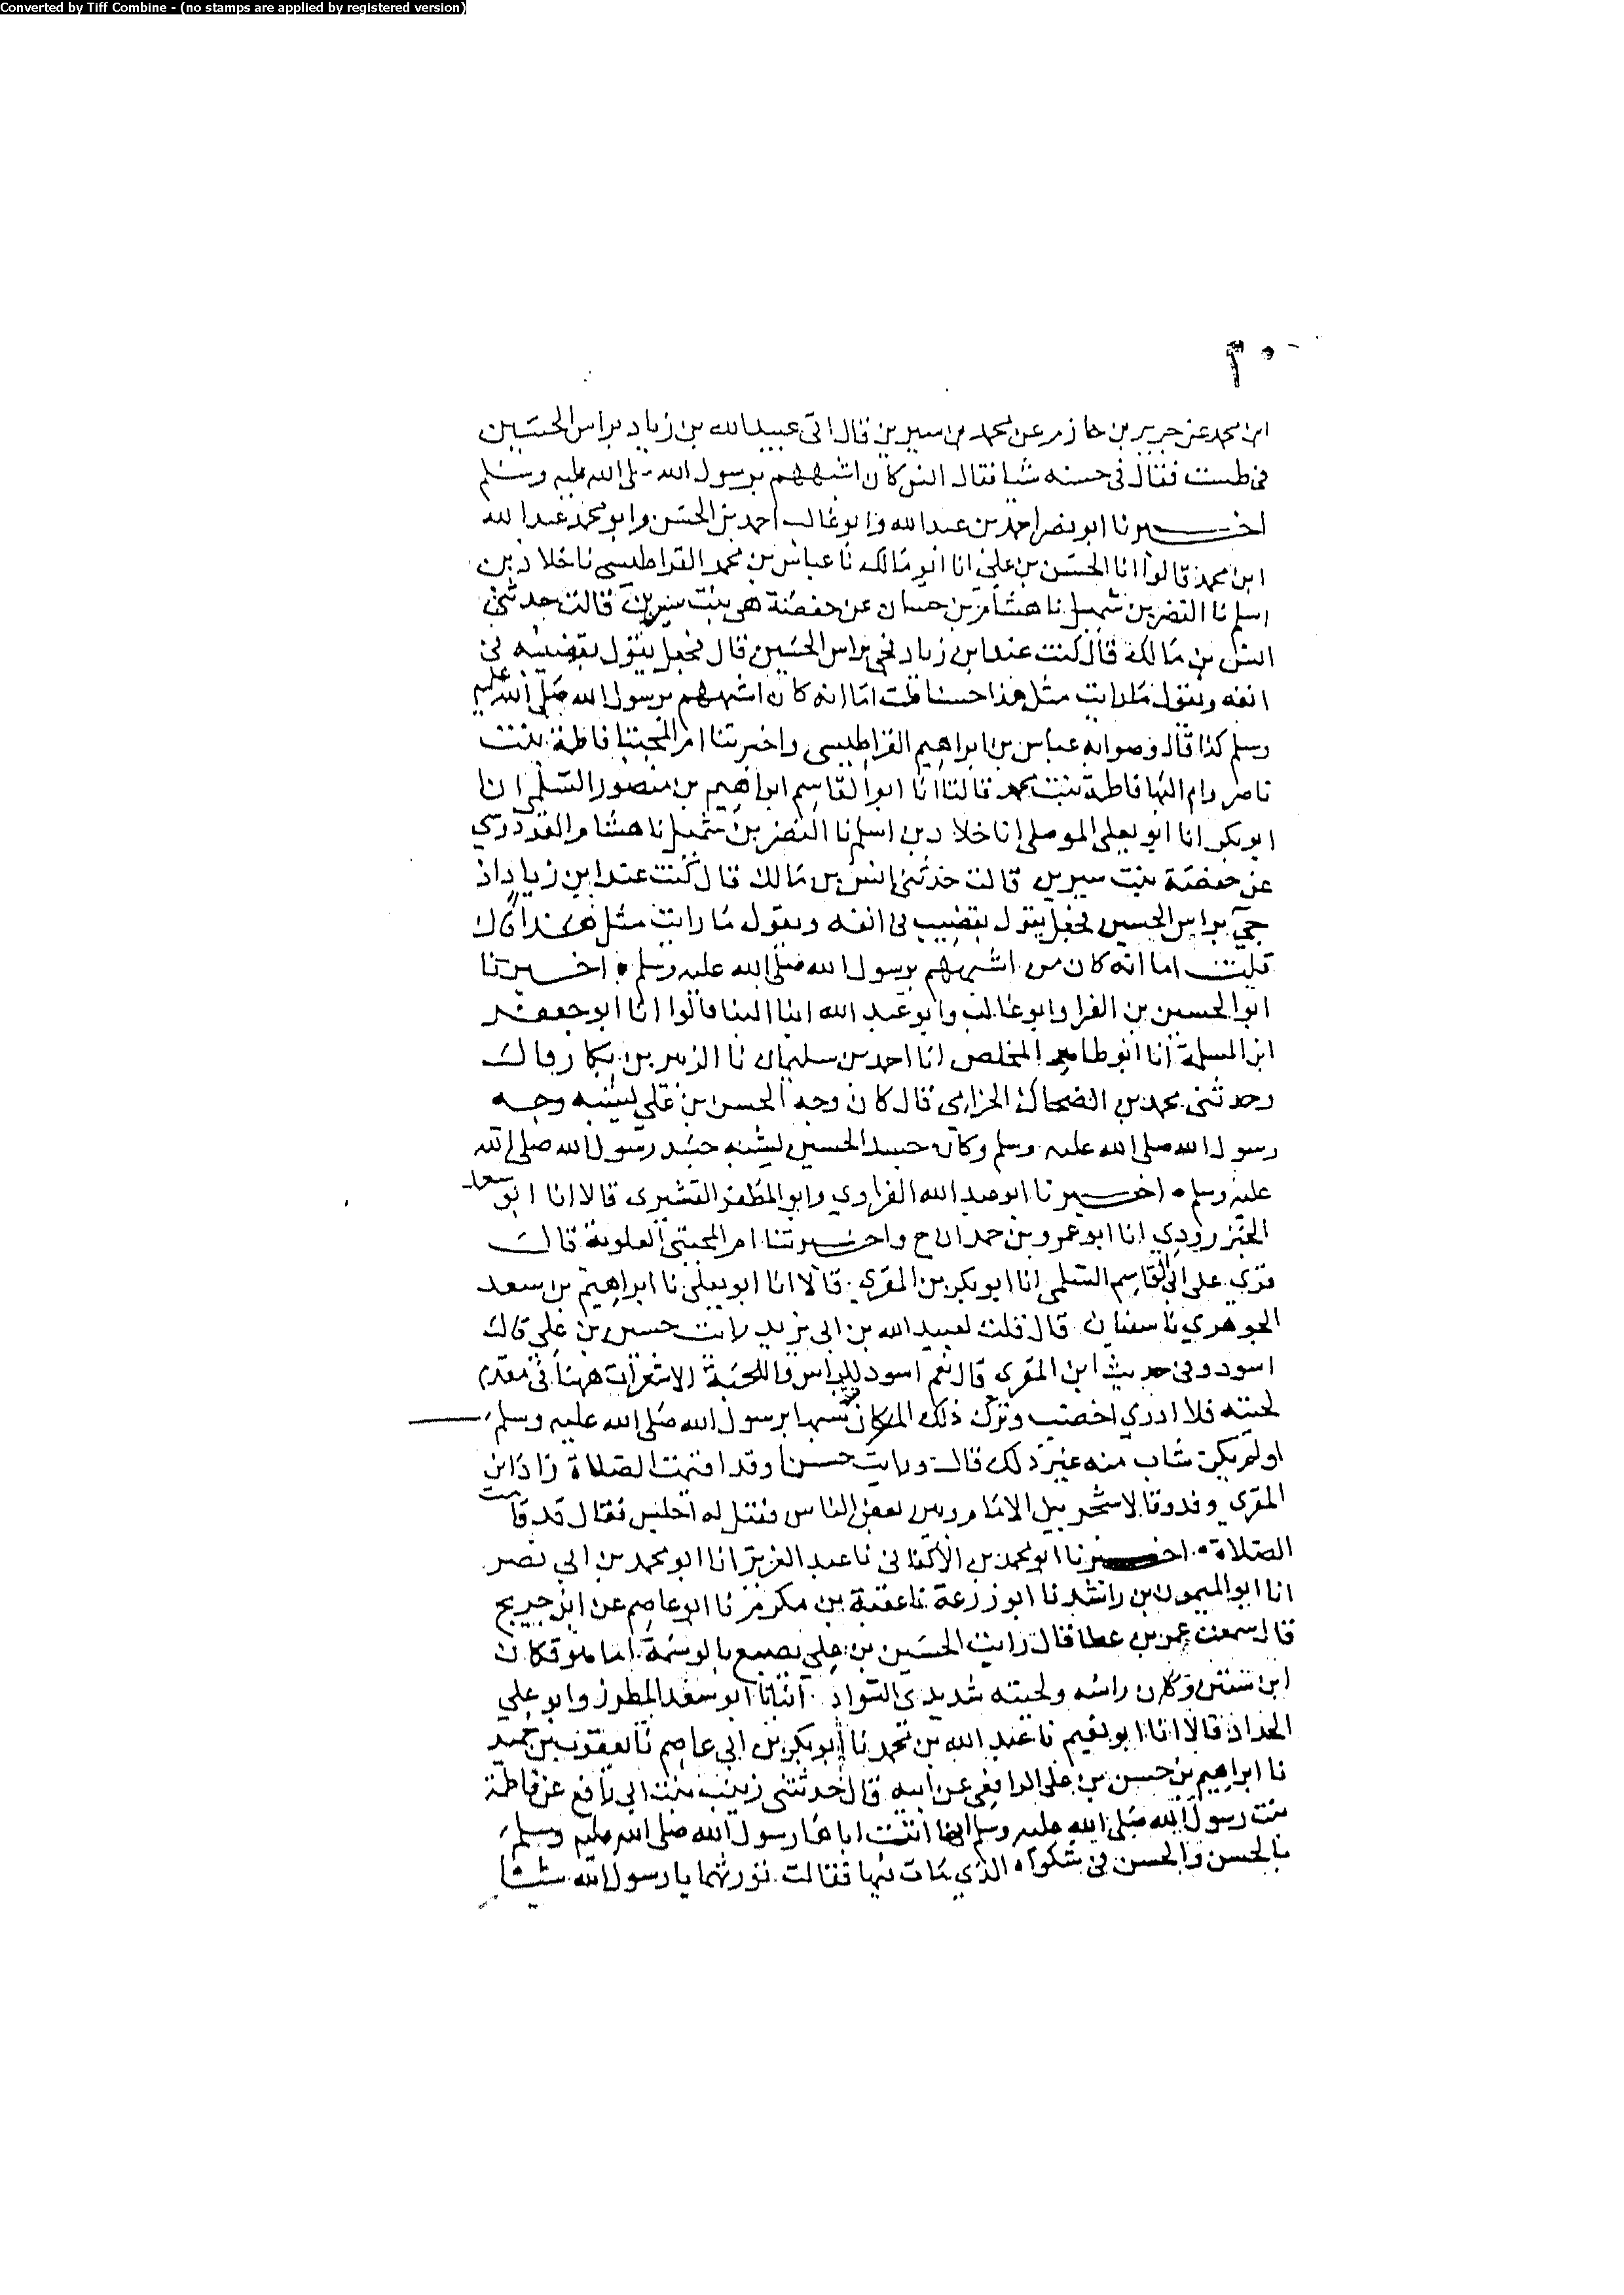 Converted by Tiff Combine - (no stamps are applied by registered version)
ابن محمد عن جرير بن حازم عن محمد بن سيرين قال اتى عبيد الله بن زياد براس الحسين
في طست فقال في حسنه شيا فقال انس كان اشبههم برسول الله صلى الله عليه وسلم
اخبرنا ابو نصر احمد بن عبد الله وابو غالب احمد بن الحسن وابو محمد عبد الله
ابن محمد قالوا انا الحسن بن علي انا ابو مالك نا عباس بن محمد القراطيسي نا خلاد بن
اسلم نا النضر بن شميل نا هشام بن حسان عن حفصة هي بنت سيرين قالت حدثني
انس بن مالك قال كنت عند ابن زياد فجي براس الحسين قال فجعل يقول بقضيبه في
انفه ويقول ما رايت مثل هذا حسنا قلت اما انه كان اشبههم برسول الله صلى الله عليه
وسلم كذا قال وصوابه عباس بن ابراهيم القراطيسي واخبرتنا ام المجتبا فاطمة بنت
ناصر وام البها فاطمة بنت محمد قالتا انا ابو القاسم ابراهيم بن منصور السلمي انا
ابو بكر انا ابو يعلى الموصلي انا خلاد بن اسلم نا النضر بن شميل نا هشام القردوسي
عن حفصة بنت سيرين قالت حدثني انس بن مالك قال كنت عند ابن زياد اذ
جي براس الحسين فجعل يقول بقضيب في انفه ويقول ما رايت مثل هذا قال
قلت اما انه كان من اشبههم برسول الله صلى الله عليه وسلم اخبرنا
ابو الحسين بن الفرا وابو غالب وابو عبد الله ابنا البنا قالوا انا ابو جعفر
ابن المسلمة انا ابو طاهر المخلص انا احمد بن سليمان نا الزبير بن بكار قال
وحدثني محمد بن الضحاك الحزامي قال كان وجه الحسن بن علي يشبه وجه
رسول الله صلى الله عليه وسلم وكان جسد الحسين يشبه جسد رسول الله صلى الله
عليه وسلم اخبرنا ابو عبد الله الفراوي وابو المظفر القشيري قالا انا ابو سعد
الجنزرودي انا ابو عمرو بن حمدان ح واخبرتنا ام المجتبى العلوية قالت
قري على ابي القاسم السلمي انا ابو بكر بن المقري قالا انا ابو يعلى نا ابراهيم بن سعد
الجوهري نا سفيان قال قلت لعبيد الله بن ابي يزيد رايت حسين بن علي قال
اسود وفي حديث ابن المقري قال نعم اسود الراس واللحية الا شعرات ههنا في مقدم
لحيته فلا ادري اخضب وترك ذلك المكان تشبها برسول الله صلى الله عليه وسلم
او لم يكن شاب منه غير ذلك قال ورايت حسنا وقد اقيمت الصلاة زاد ابن
المقري الامام وبين بعض الناس فقيل له اجلس فقال قد قامت
الصلاة اخبرنا ابو محمد بن الاكفاني نا عبد العزيز انا ابو محمد بن ابي نصر
انا ابو الميمون بن راشد نا ابو زرعة نا عقبة بن مكرم نا ابو عاصم عن ابن جريج
قال سمعت عمر بن عطا قال رايت الحسين بن علي يصبغ بالوسمة اما هو فكان
ابن ستين وكان راسه ولحيته شديدي السواد انبانا ابو سعد المطرز وابو علي
الحداد قالا انا ابو نعيم نا عبد الله بن محمد نا ابو بكر بن ابي عاصم نا يعقوب بن حميد
نا ابراهيم بن حسن بن علي الرافعي عن ابيه قال حدثتني زينب بنت ابي رافع عن فاطمة
بنت رسول الله صلى الله عليه وسلم انها اتت اباها رسول الله صلى الله عليه وسلم
بالحسن والحسين في شكواه الذي مات فيها فقالت تورثهما يا رسول الله شيئا